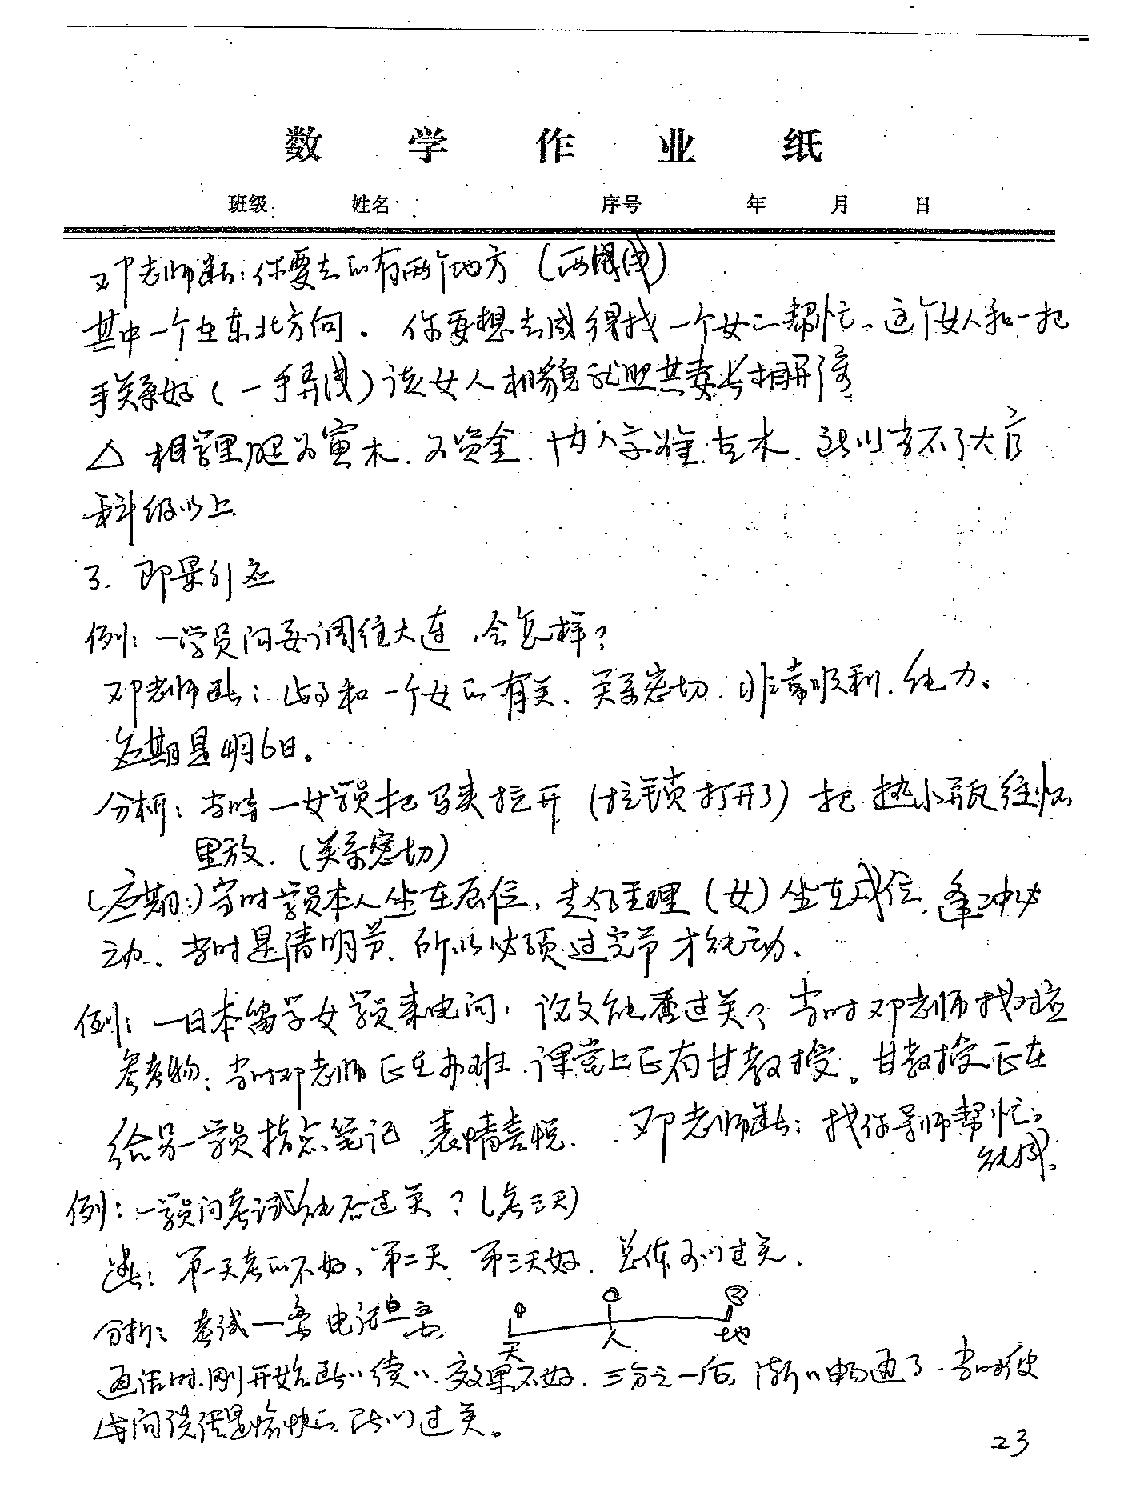 数学作业纸
班级: 姓名: 序号 年 月 日
邓老师断:你要去的有两个地方(两国或)
其中一个在东北方向. 你要想去成得找一个女的帮忙。这个女人和一把
手关系好(一手弄成)该女人相貌就照其妻长相解释
△ 相学里腿为寅木. 为资金. 内八字准克木. 所以当不了大官
科级以上
3. 即景引应
例:一学员问要调往大连,会怎样?
邓老师断:此事和一个女的有关. 关系密切. 非常顺利. 给力。
应期是明6日。
分析:当时一女学员把马夹拉开(拉锁打开了)把热水瓶往怀
里放. (关系密切)
(应期:)当时学员本人坐在辰位,赵经理(女)坐在戌位,逢冲必
动. 当时是清明节. 所以必须过完节才能动.
例:一日本留学女学员来电问:论文能否过关?当时邓老师找对应
参考物:当时邓老师正在办班.课堂上正有甘教授。甘教授正在
给另一学员指点笔记 表情喜悦. 邓老师断:找你导师帮忙
能成.
例:一学员问考试能否过关?(考三天)
断:第一天考的不好,第二天、第三天好. 总体可以过关.
分析:考试一为电话
天 人 地
通话时,刚开始断断续续,效果不好. 三分之一后,渐渐畅通了. 当时使
时间谈得是愉快的 所以过关。
23